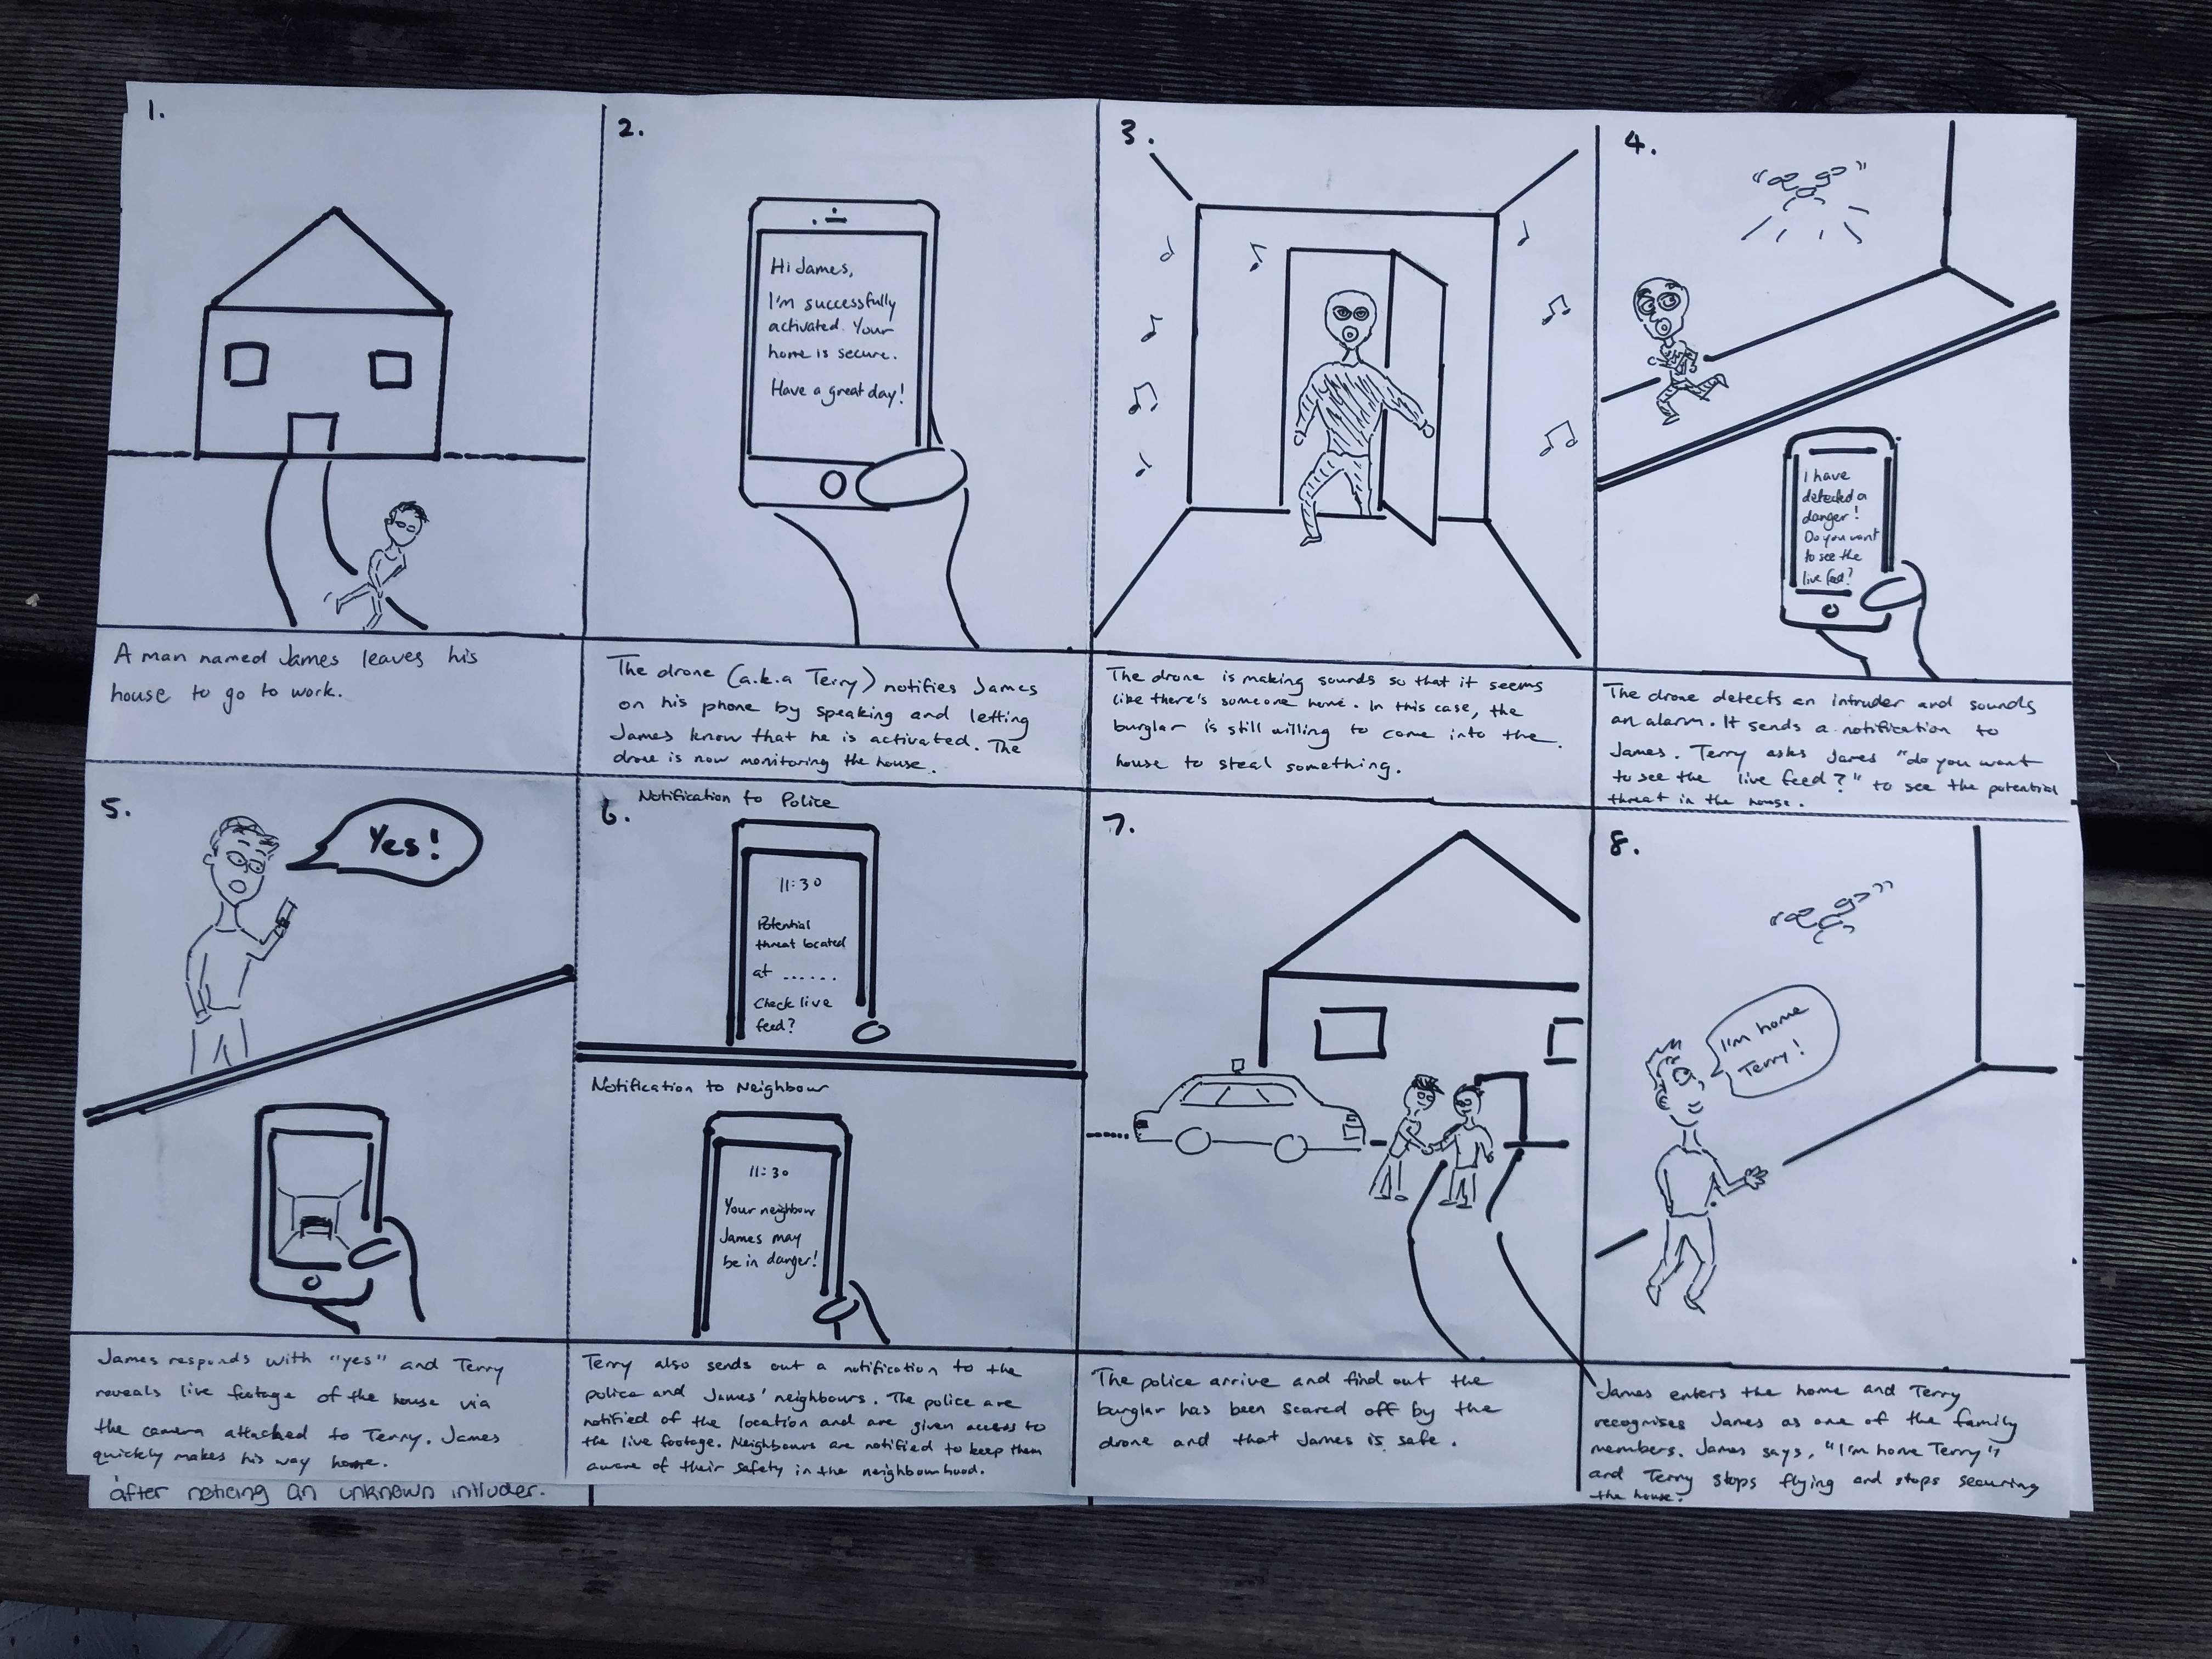 1.
A man named James leaves his
house to go to work.
2.
Hi James,
I'm successfully
activated. Your
home is secure.
Have a great day!
The drone (a.k.a Terry) notifies James
on his phone by speaking and letting
James know that he is activated. The
drone is now monitoring the house.
3.
The drone is making sounds so that it seems
like there's someone home. In this case, the
burglar is still willing to come into the
house to steal something.
4.
I have
detected a
danger!
Do you want
to see the
live feed?
The drone detects an intruder and sounds
an alarm. It sends a notification to
James. Terry asks James "do you want
to see the live feed?" to see the potential
threat in the house.
5.
Yes!
James responds with "yes" and Terry
reveals live footage of the house via
the camera attached to Terry. James
quickly makes his way home.
after noticing an unknown intruder.
6.
Notification to Police
11:30
Potential
threat located
at ......
Check live
feed?
Notification to Neighbour
11:30
Your neighbour
James may
be in danger!
Terry also sends out a notification to the
police and James' neighbours. The police are
notified of the location and are given access to
the live footage. Neighbours are notified to keep them
aware of their safety in the neighbourhood.
7.
The police arrive and find out the
burglar has been scared off by the
drone and that James is safe.
8.
I'm home
Terry!
James enters the home and Terry
recognises James as one of the family
members. James says, "I'm home Terry"
and Terry stops flying and stops securing
the house.